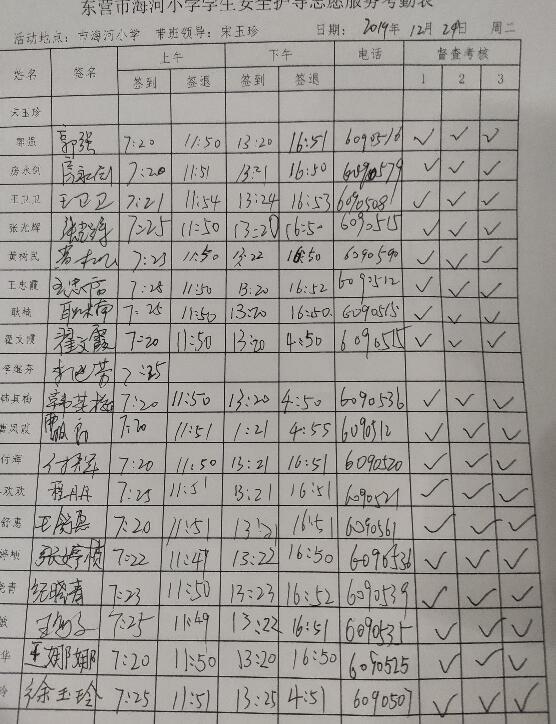 东营市海河小学学生安全护导志愿服务考勤表
活动地点：市海河小学 带班领导：宋玉珍 日期：2019年12月24日 周二
姓名 签名 上午 下午 电话 督查考核
签到 签退 签到 签退 1 2 3
宋玉珍
郭强 郭强 7:20 11:50 13:20 16:51 6090516 ✓ ✓ ✓
7:20 11:51 13:21 16:50 6090579 ✓ ✓ ✓
王卫卫 王卫卫 7:21 11:54 13:24 16:53 6090508 ✓ ✓ ✓
张光辉 张光辉 7:25 11:50 13:20 16:50 6090515 ✓ ✓ ✓
黄树民 7:25 11:50 13:22 16:50 6090590 ✓ ✓ ✓
王志霞 王志霞 7:25 11:50 13:20 16:52 6090512 ✓ ✓ ✓
耿楠 耿楠 7:25 11:50 13:20 16:50 6090515 ✓ ✓ ✓
翟文霞 翟文霞 7:20 11:50 13:20 4:50 6090515 ✓ ✓ ✓
7:25
韩英梅 7:20 11:50 13:20 4:50 6090536 ✓ ✓ ✓
曹凤霞 7:20 11:51 1:21 4:55 6090512 ✓ ✓ ✓
付海 7:20 11:50 13:21 16:51 6090520 ✓ ✓ ✓
欢欢 程丹丹 7:25 11:51 13:21 16:51 6090521 ✓ ✓ ✓
舒惠 王舒惠 7:20 11:51 13:21 16:51 6090561 ✓ ✓ ✓
婷桢 张婷桢 7:22 11:47 13:22 16:50 6090536 ✓ ✓ ✓
晓青 纪晓青 7:23 11:50 13:23 16:52 6090539 ✓ ✓ ✓
敏 7:25 11:49 13:22 16:51 6090535 ✓ ✓ ✓
华 王娜娜 7:20 11:50 13:20 16:50 6090525 ✓ ✓ ✓
玲 徐玉玲 7:25 11:51 13:25 4:51 6090507 ✓ ✓ ✓